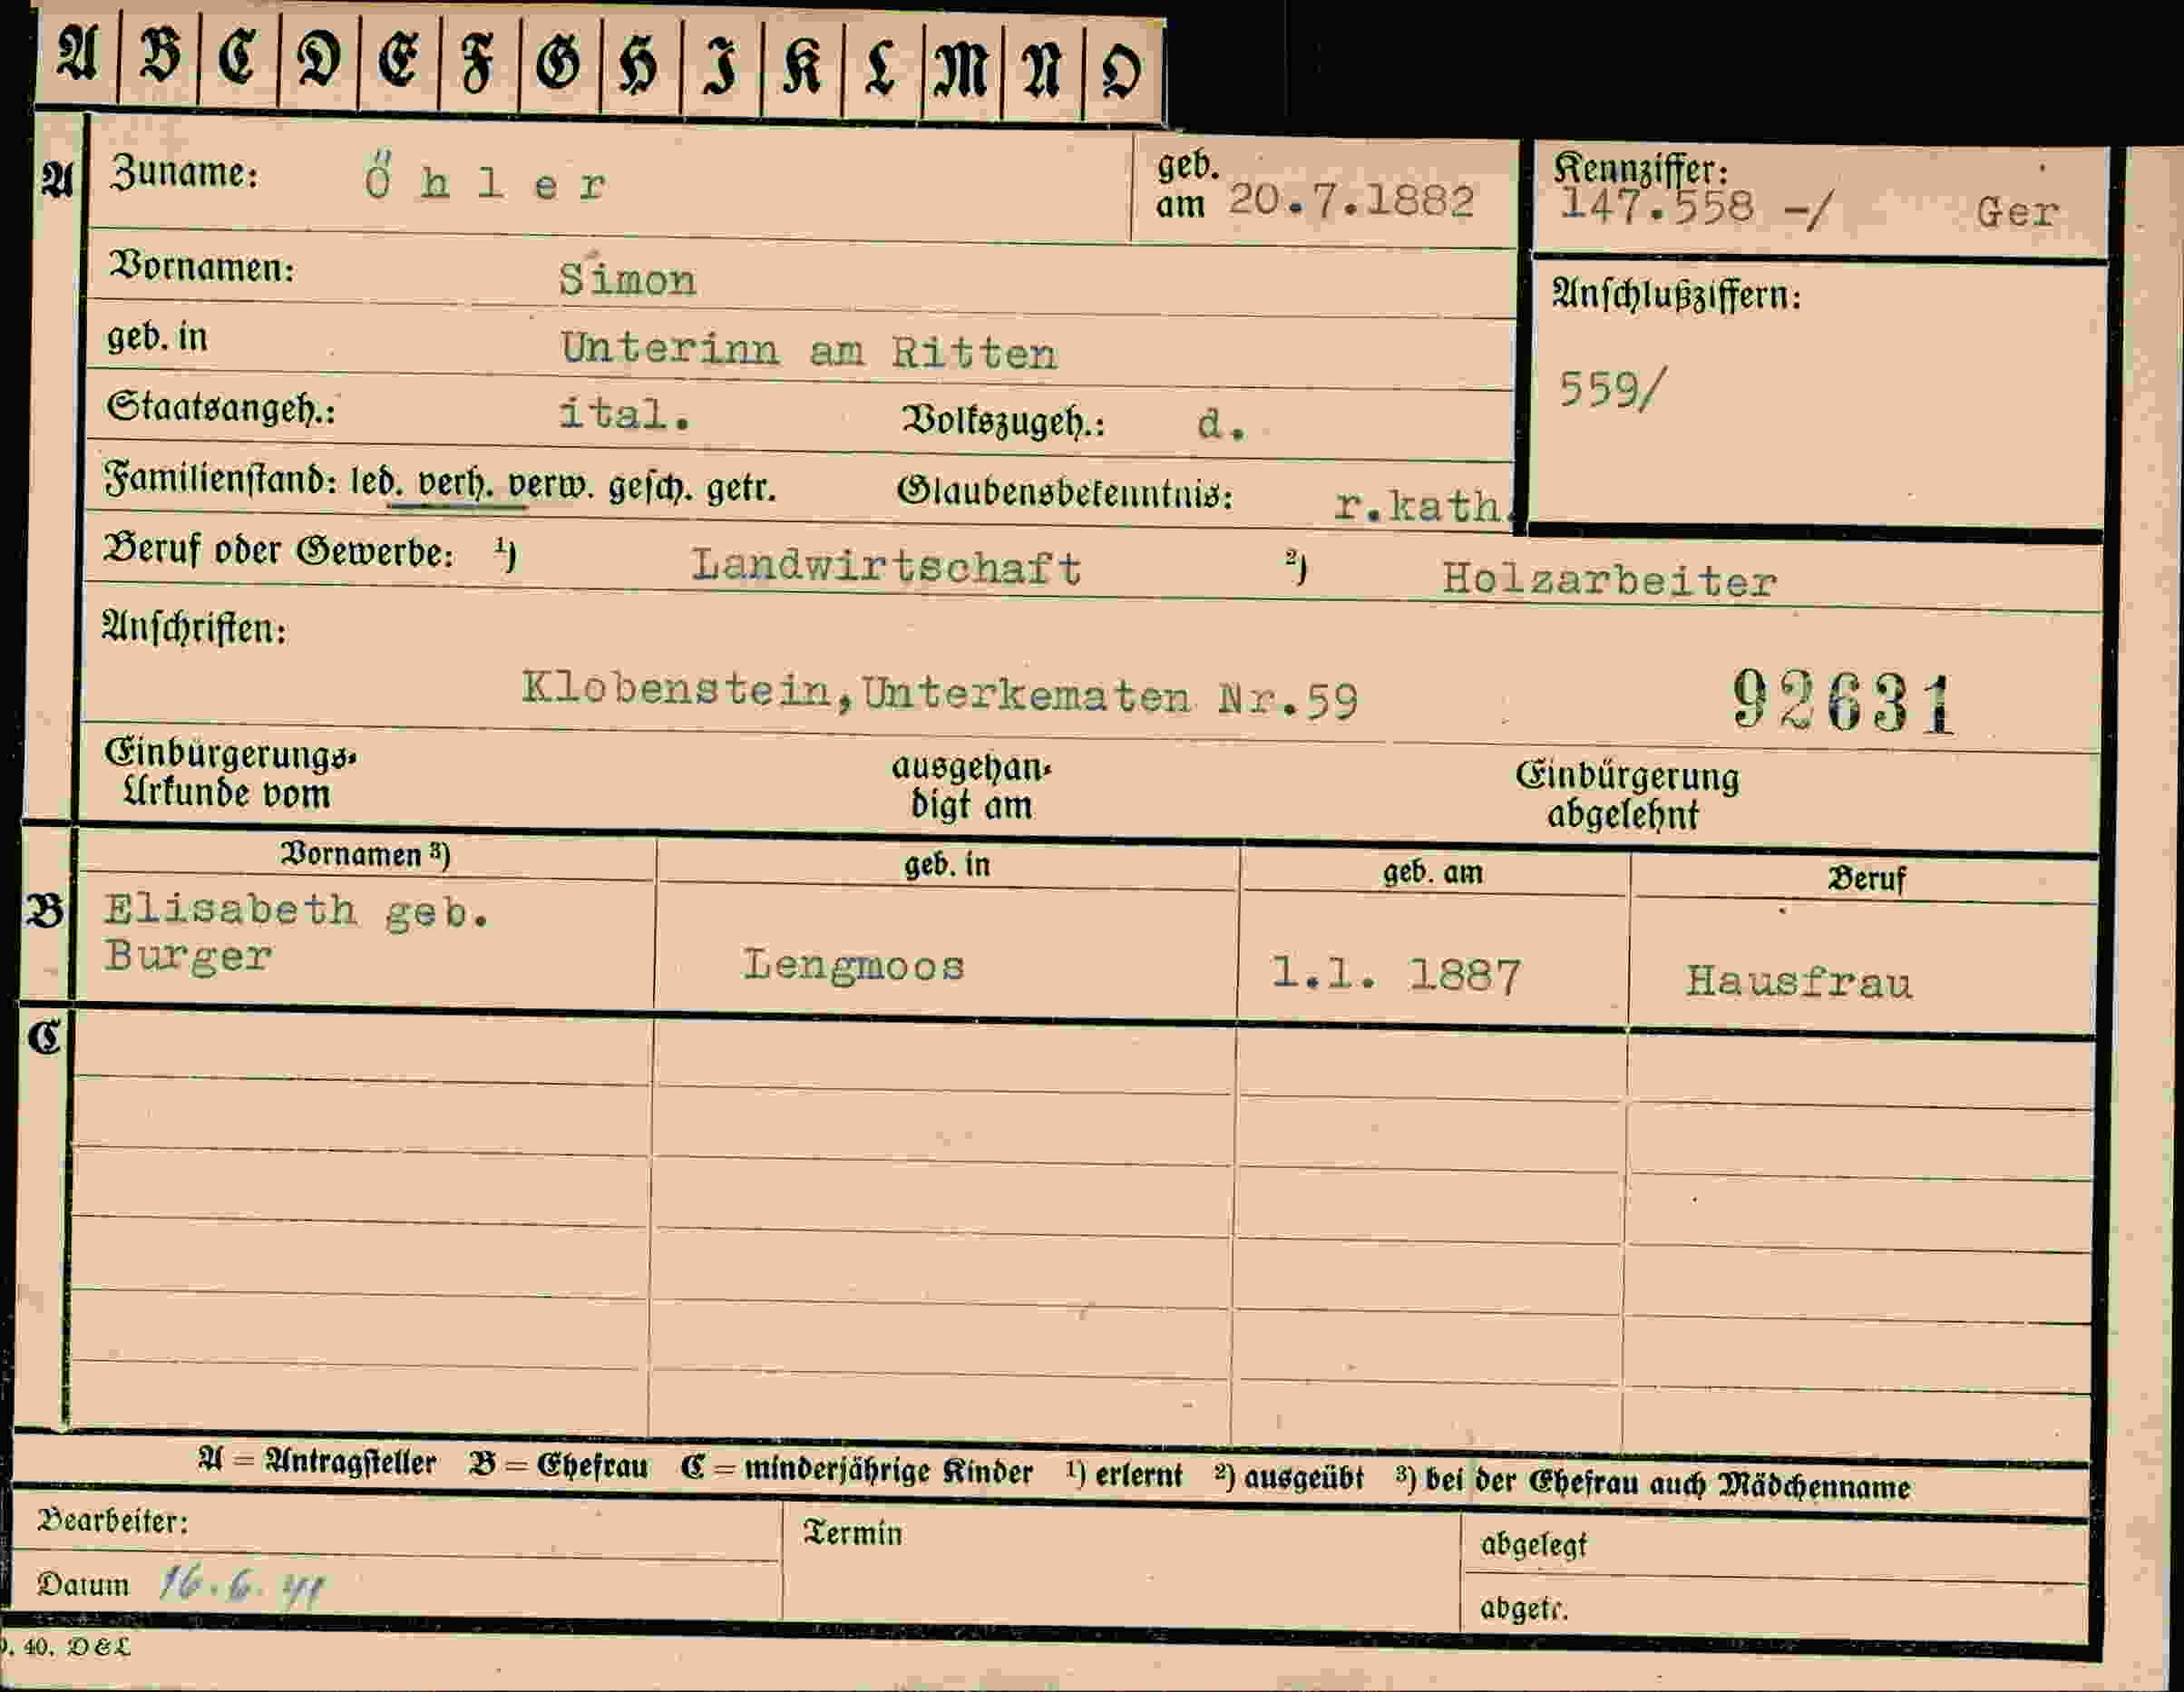 A B C D E F G H I K L M N O
A Zuname: Öhler geb. am 20.7.1882 Kennziffer: 147.558 -/ Ger
Vornamen: Simon
Anschlußziffern:
geb. in Unterinn am Ritten
559/
Staatsangeh.: ital. Volkszugeh.: d.
Familienstand: led. verh. verw. gesch. getr. Glaubensbekenntnis: r.kath.
Beruf oder Gewerbe: 1) Landwirtschaft 2) Holzarbeiter
Anschriften:
Klobenstein,Unterkematen Nr.59 92631
Einbürgerungs- ausgehän- Einbürgerung
Urkunde vom digt am abgelehnt
Vornamen 3) geb. in geb. am Beruf
B Elisabeth geb.
Burger Lengmoos 1.1. 1887 Hausfrau
C
A = Antragsteller B = Ehefrau C = minderjährige Kinder 1) erlernt 2) ausgeübt 3) bei der Ehefrau auch Mädchenname
Bearbeiter: Termin abgelegt
Datum 16.6.41 abgetr.
40. D & L